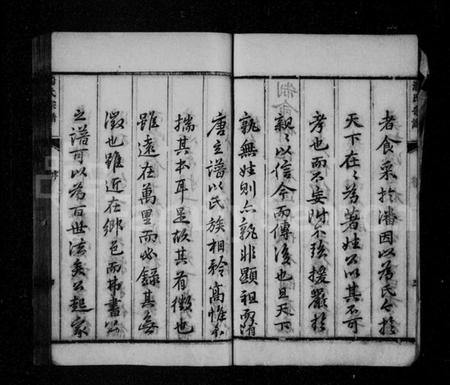 者食采於潘因以為氏今於
天下在在為著姓公以其不可
考也而不妄附不强援嚴於
親親以信今而傳後也且天下
孰無姓則亦孰非顯祖而隋
唐立譜以氏族相矜高悔不
揣其本耳是故其有徵也
雖遠在萬里而必錄其無
徵也雖近在鄉邑而弗書公
之譜可以為百世法矣公起家